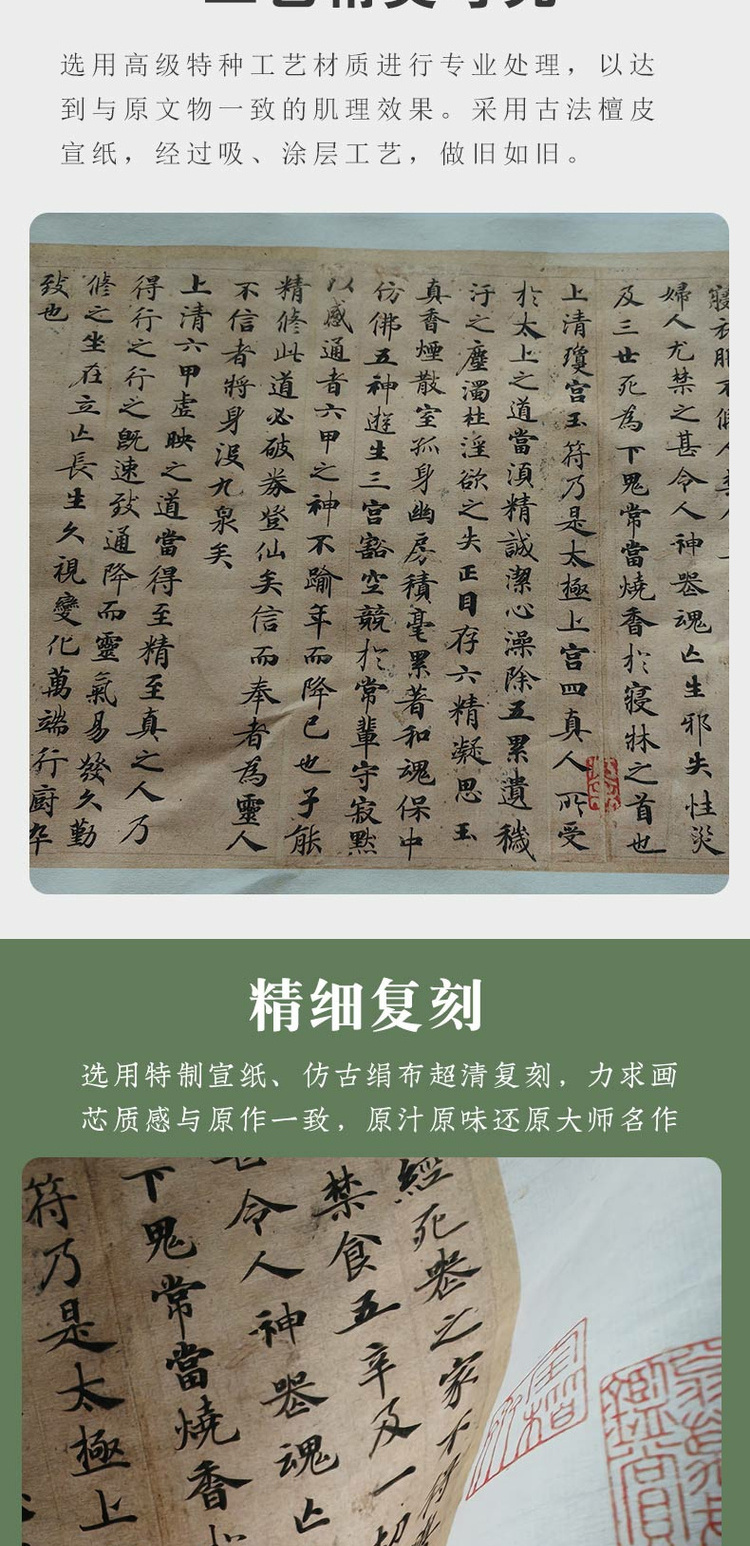 选用高级特种工艺材质进行专业处理，以达
到与原文物一致的肌理效果。采用古法檀皮
宣纸，经过吸、涂层工艺，做旧如旧。
婦人尤禁之甚令人神噐魂亡生邪失性災
及三世死為下鬼常當燒香扵寢牀之首也
上清瓊宮玉符乃是太極上宮四真人所受
扵太上之道當湏精誠潔心澡除五累遺穢
汙之塵濁杜淫欲之失正目存六精凝思玉
真香煙散室孤身幽房積毫累著和魂保中
仿佛五神遊生三宮豁空競扵常輩守寂黙
以感通者六甲之神不踰年而降已也子能
精修此道必破券登仙矣信而奉者為靈人
不信者將身没九泉矣
上清六甲虛映之道當得至精至真之人乃
得行之行之既速致通降而靈氣易發久勤
修之坐在立亡長生久視變化萬端行廚卒
致也
精细复刻
选用特制宣纸、仿古绢布超清复刻，力求画
芯质感与原作一致，原汁原味还原大师名作
經死喪之家不
禁食五辛及一切
令人神噐魂亡
下鬼常當燒香
符乃是太極上